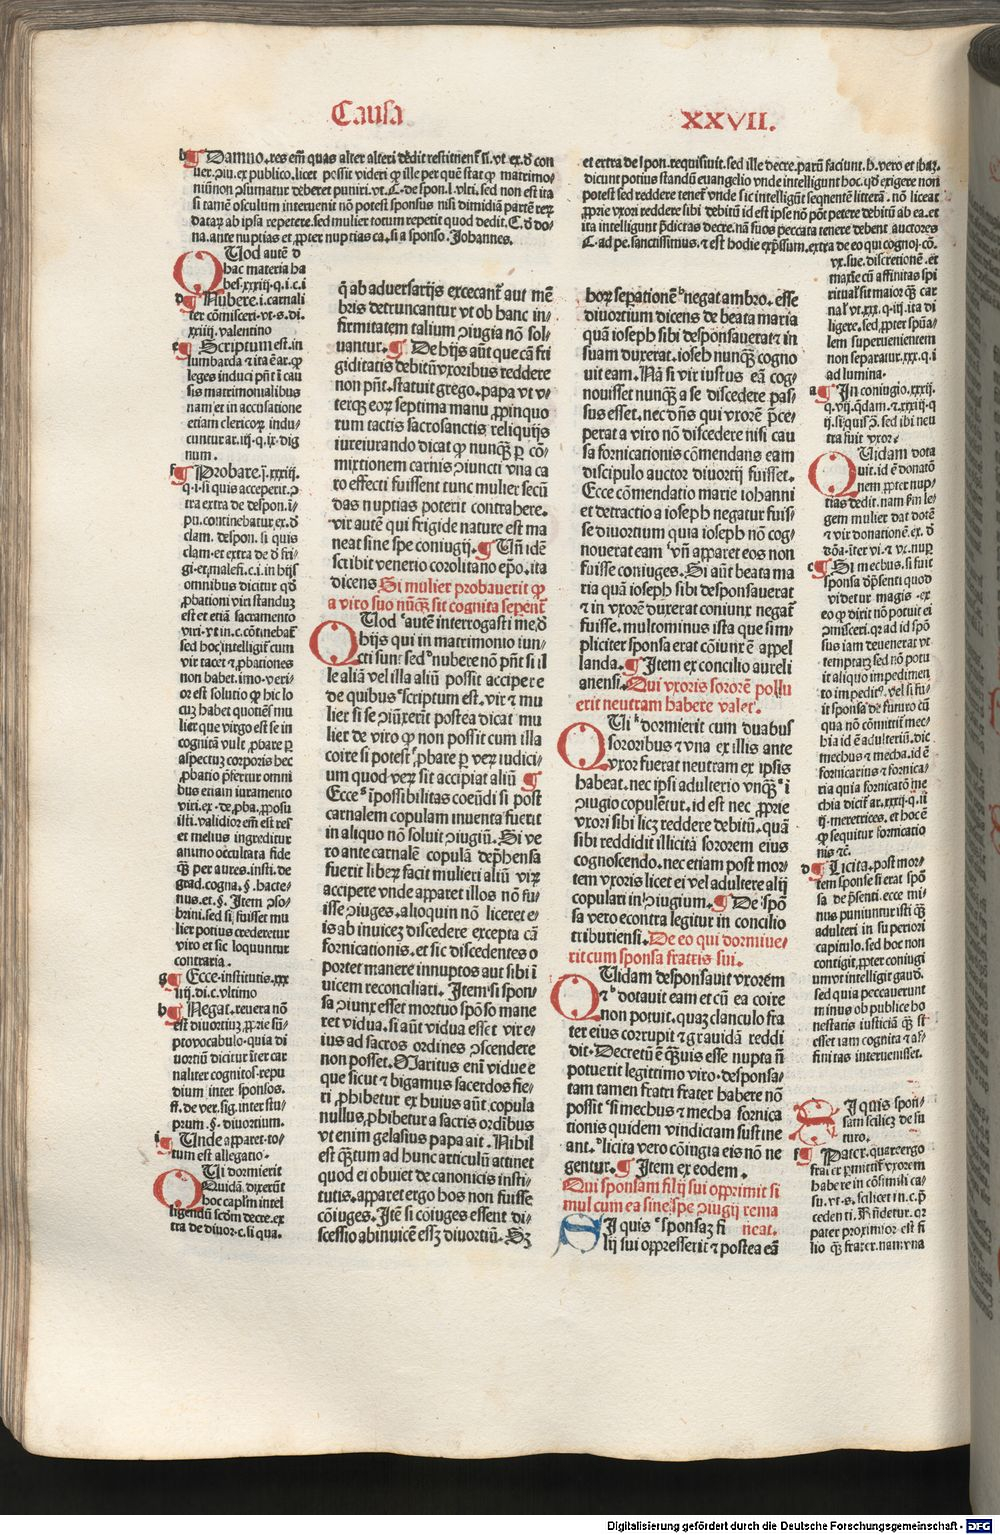 Causa
XXVII.
b ¶ Damno. res em̄ quas alter alteri dedit restitient̄
uer. ɔiu. ex publico. licet possit videri ꝙ ille per quē stat ꝙ matrimo-
si tamē osculum interuenit nō potest sponsus nisi dimidiā partē
datarꝫ ab ipsa repetere. sed mulier totum repetit quod dedit. C. đ do-
na. ante nuptias et ꝓpter nuptias ca. si a sponso. Johannes.
QUod autē đ
hac materia ha
bes. xxxiij. q. i. c. i
d ¶ Nubere. i. carnali
ter cōmisceri. vt. s. di.
xxiij. valentino
e ¶ Scriptum est. in
lumbarda ⁊ ita ē ar. ꝙ
leges induci pn̄t ī cau
sis matrimonialibus
nam et in accusatione
etiam clericorꝫ indu-
cuntur ar. iij. q. ix. dig
num.
f ¶ Probare. j. xxxiij.
q. i. si quis acceperit. ɔ
tra extra de despon. ī-
pu. continebatur. ex. đ
clam. despon. si quis
clam. et extra de đ fri-
gi. et malefi. c. i. in hijs
omnibus dicitur qđ
ꝓbationi viri standuꝫ
est et etiā sacramento
viri. vt in. c. cōtinebat̄
sed hoc, intelligit̄ cum
vir tacet ⁊ ꝓbationes
non habet. imo. veri-
or est solutio ꝙ hic lo
cuꝫ habet quotiēs mu
lier que virgo est se in
cognitā vult ꝓbare ꝑ
aspectuꝫ corporis hec
ꝓbatio p̄fertur omni
bus etiam iuramento
viri. ex. de ꝓba. ꝓposu
isti. validior em̄ est res
et melius ingreditur
animo occultata fide
ꝙ̄ per aures. insti. de
grad. cogna. §. hacte-
nus. et. §. Item ɔso-
brini. sed si fuisset mu
lier potius crederetur
viro et sic loquuntur
contraria.
g ¶ Ecce. institutis. xxx
iiij. di. c. vltimo
h ¶ Negat. reuera nō
est diuortiuꝫ ꝓprie sū-
pto vocabulo. quia di
uortiū dicitur īter car
naliter cognitos. repu
dium inter sponsos.
ff. de ver. sig. inter stu-
prum. §. diuortium.
i ¶ Unde apparet. to-
tum est allegatio.
QUi dormierit
Quidā dixerūt
hoc capl̄m intel
ligendū scdm decre. ex
tra de diuor. c. si qua.
ꝗ ab aduersarijs excecant̄ aut mē
bris detruncantur vt ob hanc in-
firmitatem talium ɔiugia nō sol-
uantur. ¶ De hijs aūt que cā fri
giditatis debitū vxoribus reddere
non pn̄t. statuit grego. papa vt v-
terqꝫ eorꝫ septima manu ꝓpinquo
rum tactis sacrosanctis reliquijs
iureiurando dicat ꝙ nunqꝫ ꝑ cō-
mixtionem carnis ɔiuncti vna ca
ro effecti fuissent tunc mulier secū
das nuptias poterit contrahere.
vir autē qui frigide nature est ma
neat sine spe coniugij. ¶ Un̄ idē
scribit venerio corolitano ep̄o. ita
dicens Si mulier probauerit ꝙ
a viro suo nūqꝫ sit cognita seperent̄
QUod autē interrogasti me, đ
hijs qui in matrimonio iun-
cti sunt sed nubere nō pn̄t si il
le aliā vel illa aliū possit accipere
de quibus scriptum est. vir ⁊ mu
lier si se ɔiūxerit postea dicat mu
lier de viro ꝙ non possit cum illa
coire si potest ꝓbare ꝑ verꝫ iudici-
um quod verꝫ sit accipiat aliū ¶
Ecce īpossibilitas coeūdi si post
carnalem copulam inuenta fuerit
in aliquo nō soluit ɔiugiū. Si ve
ro ante carnalē copulā dep̄hensa
fuerit liberꝫ facit mulieri aliū virꝫ
accipere vnde apparet illos nō fu-
isse ɔiuges. alioquin nō liceret e-
is ab inuiceꝫ discedere excepta cā
fornicationis. et sic discedentes o
portet manere innuptos aut sibi ī
uicem reconciliari. Item si spon-
sa ɔiunx esset mortuo spōso mane
ret vidua. si aūt vidua esset vir e-
ius ad sacros ordines ɔscendere
non posset. Maritus eni vidue e
que sicut ⁊ bigamus sacerdos fie-
ri ꝓhibetur ex huius aūt copula
nullus ꝓhibetur a sacris ordibus
vt enim gelasius papa ait. Nihil
est ꝙ̄tum ad hunc articulū attinet
quod ei obuiet de canonicis insti-
tutis. apparet ergo hos non fuisse
cōiuges. Itē si cōiuges essent di-
scessio abinuicē esseꝫ diuortiū. Sꝫ
et extra de spon. requisiuit. sed ille decre. parū faciunt. h. vero et ibar.
dicunt potius standū euangelio vnde intelligunt hoc. qđ exigere non
potest sed reddere tenet̄ vnde sic intelligūt sequentē litterā. nō liceat
ꝓprie vxori reddere sibi debitū id est ipse nō pōt petere debitū ab ea. et
ita intelligunt p̄dicras decre. nā suos peccata tenere debent auctores
C. ad pe. sanctissimus. ⁊ est hodie exp̄ssum. extra de eo qui cognoj. cō.
horꝫ seperationē negat ambro. esse
diuortium dicens de beata maria
quā ioseph sibi desponsauerat ⁊ in
suam duxerat. ioseh nunqꝫ cogno
uit eam. Nā si vir iustus eā cog-
nouisset nunqꝫ a se discedere pas-
sus esset. nec dn̄s qui vxorē p̄ce-
perat a viro nō discedere nisi cau
sa fornicationis cōmendans eam
discipulo auctor diuortij fuisset.
Ecce cōmendatio marie iohanni
et detractio a ioseph negatur fuis-
se diuortium quia ioseph nō cog-
nouerat eam vn̄ apparet eos non
fuisse coniuges. Si aūt beata ma
ria quā ioseph sibi desponsauerat
⁊ in vxorē duxerat coniunx negat̄
fuisse. multominus ista que sim-
pliciter sponsa erat cōiunx ē appel
landa. ¶ Item ex concilio aureli
anensi. Qui vxoris sororē pollu
erit neutram habere valet.
QUi dormierit cum duabus
sororibus ⁊ vna ex illis ante
vxor fuerat neutram ex ipsis
habeat. nec ipsi adulterio vnqꝫ ī
ɔiugio copulētur. id est nec ꝓprie
vxori sibi liceꝫ reddere debitū. quā
sibi reddidit illicitā sororem eius
cognoscendo. nec etiam post mor-
tem vxoris licet ei vel adultere alij
copulari in ɔiugium. ¶ De spō
sa vero econtra legitur in concilio
triburiensi. De eo qui dormiue-
rit cum sponsa fratris sui.
QUidam desponsauit vxorem
⁊ dotauit eam et cū ea coire
non potuit. quaꝫ clanculo fra
ter eius corrupit ⁊ grauidā reddi
dit. Decretū ē ꝙ̄uis esse nupta n̄
potuerit legittimo viro. desponsa-
tam tamen fratri frater habere nō
possit si mechus ⁊ mecha fornica
tionis quidem vindictam sustine
ant. licita vero cōingia eis nō ne
gentur. ¶ Item ex eodem.
Qui sponsam filij sui oppremit si
mul cum ea sine spe ɔiugij rema
neat.
SI quis sponsaꝫ fi
lij sui oppresserit ⁊ postea eā
vx. sue. discretionē. et
maxīe cū affinitas spi
ritual̄ sit maior ꝙ̄ car
nal̄ vt. xxx. q. iij. ita di
ligere. sed, ꝓpter spūa-
lem superuenientem
non separatur. xxx. q. i
ad lumina.
a ¶ In coniugio. xxxij.
q. vij. q̄dam. ⁊. xxxij. q
ij. si quis ɔ. sed ibi neu
tra fuit vxor.
QUidam dota
uit. id ē donatō
nem ꝓpter nup-
tias dedit. nam s̄m le-
gem mulier dat dotē
⁊ vir donationē. ex. đ
dōa. īter vi. ⁊ vx. nuꝑ
c ¶ Si mechus. si fuit
sponsa đp̄senti quod
videtur magis. ex
eo ꝙ dixit nō potuit ei
ɔmisceri. qꝛ ad id spō
sus iam deuenerat vt
temptarꝫ sed nō potu
it aliquo impedimen
to impedit̄. vel si fu-
it sponsa de futuro cū
qua nō cōmittit̄ mec-
hia id ē adulteriū. dic
mechus ⁊ mecha. id ē
fornicarius ⁊ fornica-
ria quia fornicatō me
chia dicit̄ ar. xxxij. q. iī
ij. meretrices. et hoc ē
ꝙ sequitur fornicatio
nis ⁊c̄.
d ¶ Licita. post mor-
tem sponse si erat spō
sa de p̄senti. ecce mi-
nus puniuntur isti ꝙ̄
adulteri in superiori
capitulo. sed hoc non
contigit ꝓpter coniugi
um vt intelligit gauđ.
sed quia peccauerunt
minus ob publice ho
nestatis iusticiā ꝙ̄ si
esset iam cognita ⁊ af-
finitas interuenisset.
SI quis spon-
sam scilicꝫ de fu
turo.
f ¶ Pater. quare ergo
frater ꝑmittit̄ vxorem
habere in cōsimili ca-
su. vt. s. scilicet in. c. p̄
cedenti. Rn̄detur. qꝛ
pater proximior est fi
lio ꝙ̄ frater. nam vna
Digitalisierung gefördert durch die Deutsche Forschungsgemeinschaft - DFG